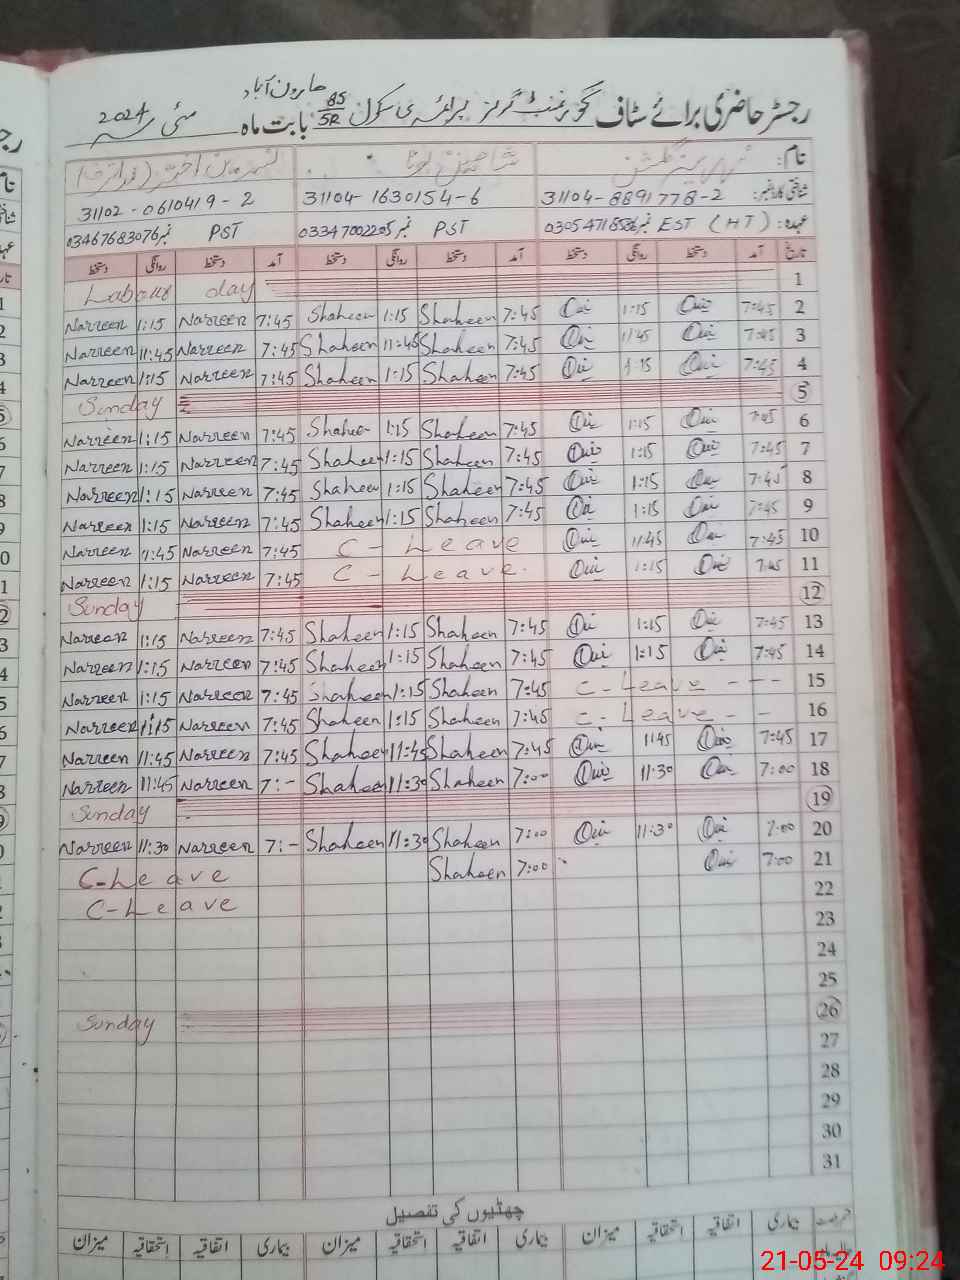 ہارون آباد
رجسٹر حاضری برائے سٹاف گورنمنٹ گرلز پرائمری سکول 85/5R بابت ماہ مئی 2024
نام:
شناختی کارڈ نمبر: 31104-8891778-2 31104-1630154-6 31102-0610419-2
عہدہ: EST (HT) نمبر PST 03347002205 نمبر PST 03467683076 نمبر
تاریخ آمد دستخط روانگی دستخط آمد دستخط روانگی دستخط آمد دستخط روانگی دستخط
Labour day 1
Nasreen 1:15 Nasreen 7:45 Shaheen 1:15 Shaheen 7:45 1:15 7:45 2
Nasreen 11:45 Nasreen 7:45 Shaheen 11:45 Shaheen 7:45 11:45 7:45 3
Nasreen 1:15 Nasreen 7:45 Shaheen 1:15 Shaheen 7:45 1:15 7:45 4
Sunday 5
Nasreen 1:15 Nasreen 7:45 Shaheen 1:15 Shaheen 7:45 1:15 7:45 6
Nasreen 1:15 Nasreen 7:45 Shaheen 1:15 Shaheen 7:45 1:15 7:45 7
Nasreen 1:15 Nasreen 7:45 Shaheen 1:15 Shaheen 7:45 1:15 7:45 8
Nasreen 1:15 Nasreen 7:45 Shaheen 1:15 Shaheen 7:45 1:15 7:45 9
Nasreen Nasreen 7:45 C-Leave 11:45 7:45 10
Nasreen 1:15 Nasreen 7:45 C-Leave. 1:15 7:45 11
Sunday 12
Nasreen 1:15 Nasreen 7:45 Shaheen 1:15 Shaheen 7:45 1:15 7:45 13
Nasreen 1:15 Nasreen 7:45 Shaheen 1:15 Shaheen 7:45 1:15 7:45 14
Nasreen 1:15 Nasreen 7:45 Shaheen 1:15 Shaheen 7:45 C-Leave --- 15
Nasreen 1:15 Nasreen 7:45 Shaheen 1:15 Shaheen 7:45 C-Leave -- 16
Nasreen 11:45 Nasreen 7:45 Shaheen 11:45 Shaheen 7:45 11:45 7:45 17
Nasreen 11:45 Nasreen 7:- Shaheen 11:30 Shaheen 7:00 11:30 7:00 18
Sunday 19
Nasreen 11:30 Nasreen 7:- Shaheen 11:30 Shaheen 7:00 11:30 7:00 20
C-Leave Shaheen 7:00 7:00 21
C-Leave 22
23
24
25
Sunday 26
27
28
29
30
31
چھٹیوں کی تفصیل
بیماری اتفاقیہ استحقاقیہ میزان بیماری اتفاقیہ استحقاقیہ میزان بیماری اتفاقیہ استحقاقیہ میزان
21-05-24 09:24